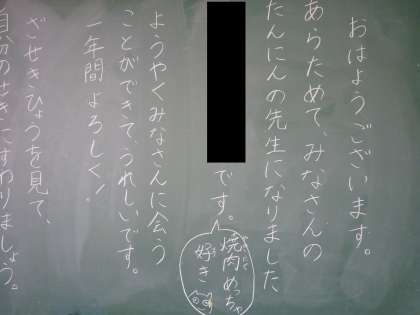 おはようございます。
あらためて、みなさんの
たんにんの先生になりました
です。
焼肉めっちゃ
好き
ようやくみなさんに会う
ことができて、うれしいです。
一年間よろしく!
ざせきひょうを見て、
自分のせきにすわりましょう。